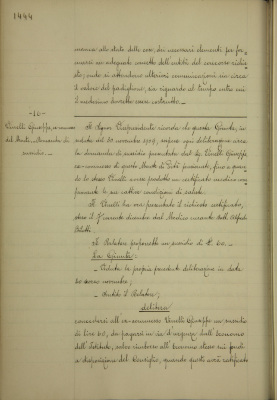 1444
manca allo stato delle cose, dei necessari elementi per for-
marsi un adeguato concetto dell'utilità del concorso richie-
sto; onde si attendono ulteriori comunicazioni sia circa
il valore del padiglione, sia riguardo al tempo entro cui
il medesimo dovrebbe essere costrutto.
-10-
Vinelli Giuseppe, ex-commesso
del Monte. Domanda di
sussidio.
Il Signor Vicepresidente ricorda che questa Giunta, in
seduta del 30 novembre 1908, sospese ogni deliberazione circa
la domanda di sussidio presentata dal Sig. Vinelli Giuseppe
ex-commesso di questo Monte di Pietà pensionato, fino a quan-
do lo stesso Vinelli avesse prodotto un certificato medico com-
provante le sue cattive condizioni di salute.
Il Vinelli ha ora presentato il richiesto certificato,
steso il corrente dicembre dal Medico curante Dott. Alfredo
Il Relatore propone un sussidio di £. 60.-
La Giunta:
- Veduta la propria precedente deliberazione in data
30 scorso novembre;
- Sentito il Relatore;
delibera
concedersi all'ex-commesso Vinelli Giuseppe un sussidio
di lire 60, da pagarsi in via d'urgenza dall'economo
dell'Istituto, salvo rimborso all'economo stesso sui fondi
a disposizione del Consiglio, quando questi avrà ratificato